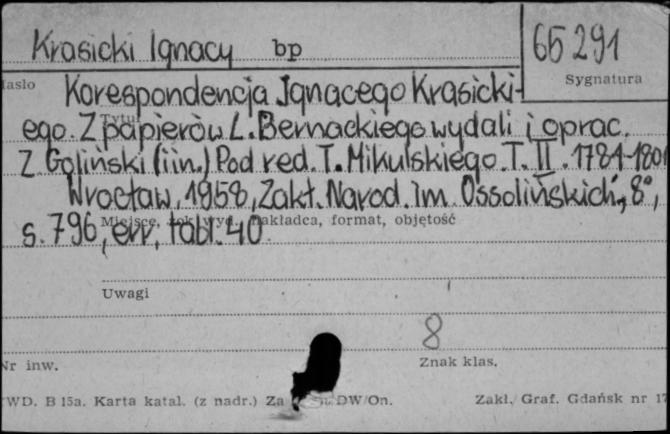 Krasicki Ignacy bp
65291
Sygnatura
Hasło
Korespondencja Ignacego Krasicki-
Tytuł
ego. Z papierów L. Bernackiego wydali i oprac.
Z. Goliński (i in.) Pod red. T. Mikulskiego. T. II. 1781-1801
Wrocław, 1958, Zakł. Narod. im. Ossolińskich, 8°,
Miejsce, rok wyd., nakładca, format, objętość
s. 796, err, tabl. 40
Uwagi
8
Nr inw.
Znak klas.
WD. B 15a. Karta katal. (z nadr.) Za DW/On.
Zakł. Graf. Gdańsk nr 17